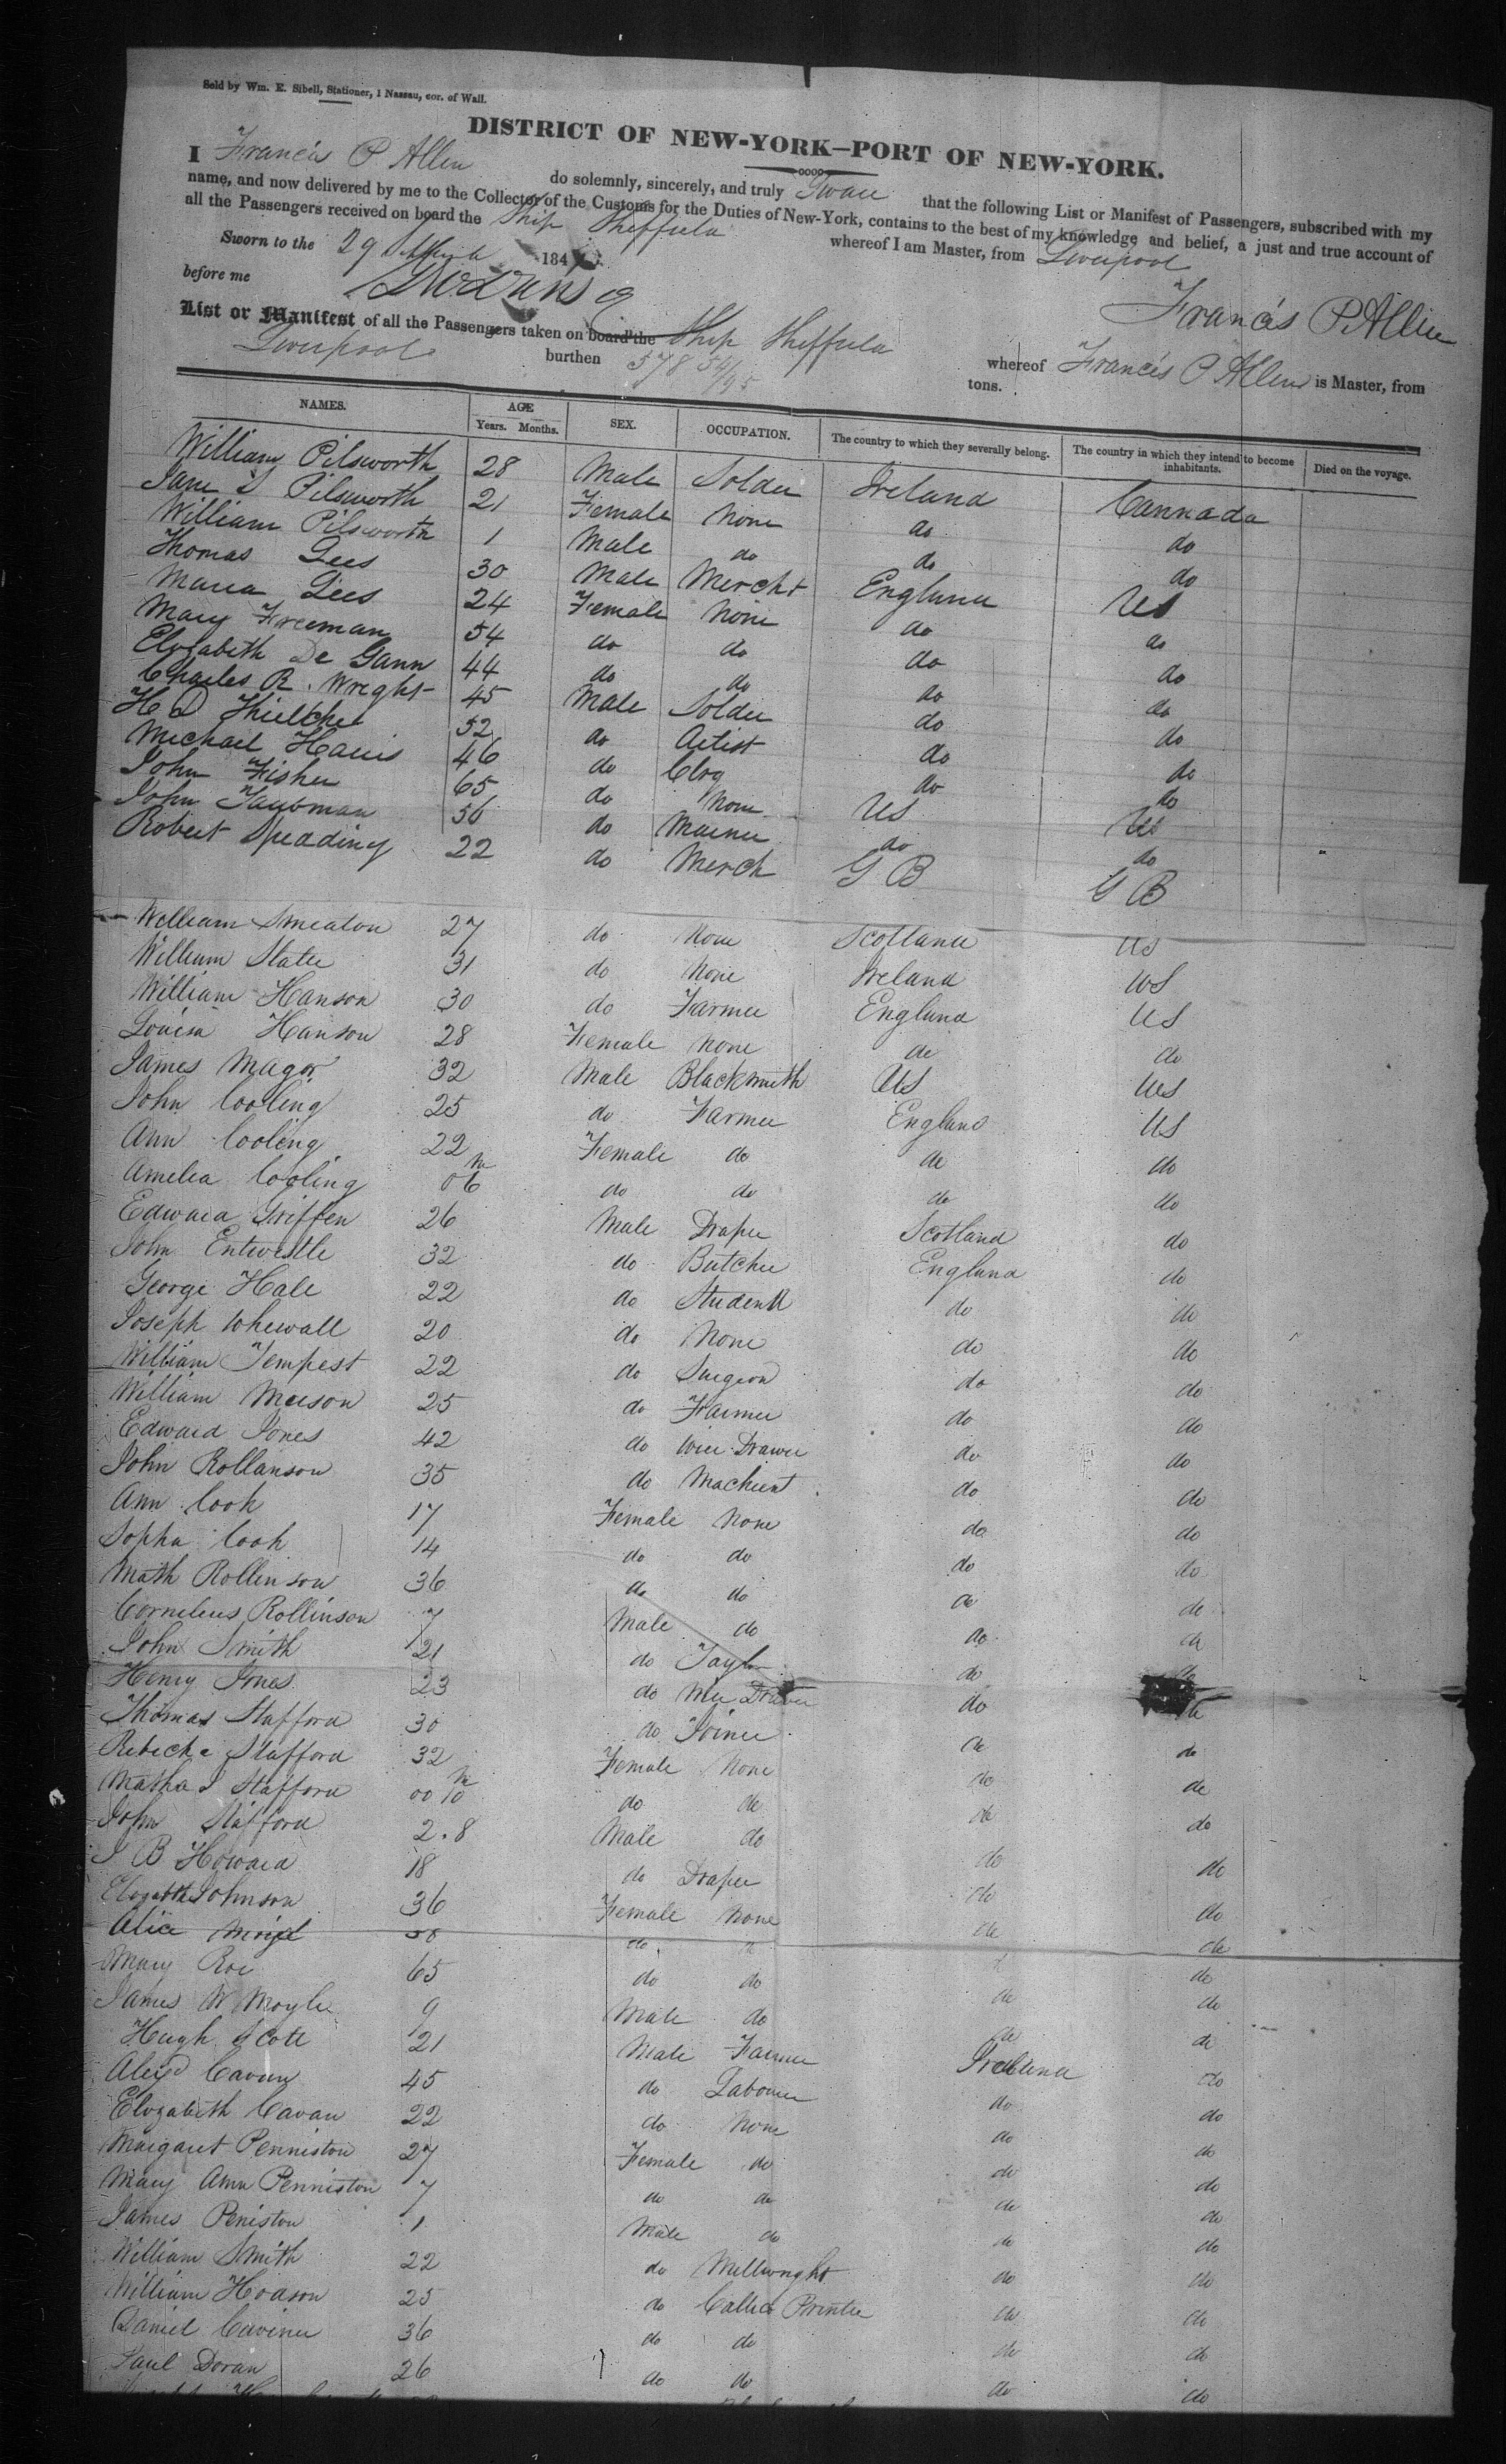 Sold by Wm. E. Sibell, Stationer, 1 Nassau, cor. of Wall.
DISTRICT OF NEW-YORK—PORT OF NEW-YORK.
I Francis P Allen do solemnly, sincerely, and truly Swear that the following List or Manifest of Passengers, subscribed with my
name, and now delivered by me to the Collector of the Customs for the Duties of New-York, contains to the best of my knowledge and belief, a just and true account of
all the Passengers received on board the Ship Sheffield whereof I am Master, from Liverpool
Sworn to the 29 184
before me Francis P Allen
List or Manifest of all the Passengers taken on board the Ship Sheffield whereof Francis P Allen is Master, from
Liverpool burthen 578 54/95 tons.
NAMES. AGE Years. Months. SEX. OCCUPATION. The country to which they severally belong. The country in which they intend to become inhabitants. Died on the voyage.
William Pilsworth 28 Male Soldier Ireland Cannada
Jane S Pilsworth 21 Female None do do
William Pilsworth 1 Male do do do
Thomas Lees 30 Male Mercht England US
Maria Lees 24 Female None do do
Mary Freeman 54 do do do do
Elizabeth De Gann 44 do do do do
Charles R. Wright 45 Male Soldier do do
H D 52 do Artist do do
Michael Harris 46 do Clrg do do
John Fisher 65 do None US US
John Taubman 56 do Mariner do do
Robert Spedding 22 do Merch G B G B
William Smeaton 27 do None Scotland US
William Slater 31 do None Ireland US
William Hanson 30 do Farmer England US
Louisa Hanson 28 Female None do do
James Magor 32 Male Blacksmith US US
John Cooling 25 do Farmer England US
Ann Cooling 22 Female do do do
Amelia Cooling 06 m do do do do
Edward Griffen 26 Male Draper Scotland do
John Entwistle 32 do Butcher England do
George Hale 22 do Student do do
Joseph Whewall 20 do None do do
William Tempest 22 do Surgeon do do
William Merson 25 do Farmer do do
Edward Jones 42 do Wier Drawer do do
John Rollanson 35 do Machinst do do
Ann Cook 17 Female None do do
Sopha Cook 14 do do do do
Math Rollinson 36 do do do do
Cornelius Rollinson 7 Male do do do
John Smith 21 do Taylor do do
Henry Jones 23 do Wier Drawer do do
Thomas Stafford 30 do Joiner do do
Rebecka Stafford 32 Female None do do
Matha J Stafford 00 10 m do do do do
John Stafford 2.8 Male do do do
J B Howard 18 do Draper do do
Elizabth Johnson 36 Female None do do
Alice do do do
Mary Roe 65 do do do do
James W Moyle 9 Male do do do
Hugh Scott 21 Male Farmer Ireland do
Alexd Cavan 45 do Labourer do do
Elizabeth Cavan 22 do None do do
Margaret Penniston 27 Female do do do
Mary Ann Penniston 7 do do do do
James Peniston 1 Male do do do
William Smith 22 do Millwright do do
William Hodson 25 do Callico Printer do do
Daniel Caviner 36 do do do do
Paul Doran 26 do do do do